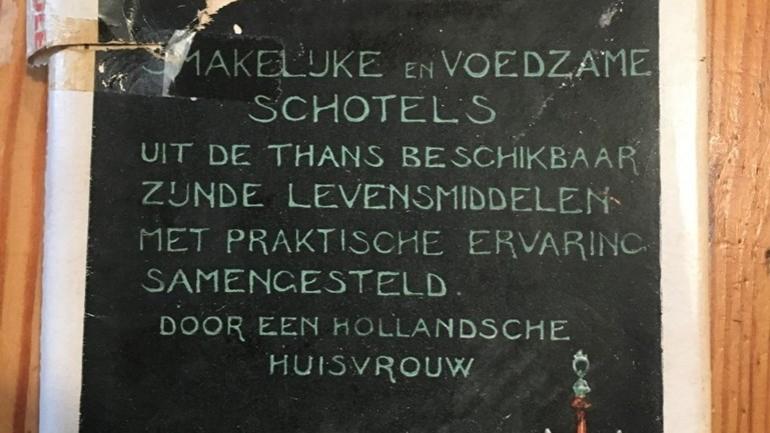 SMAKELIJKE EN VOEDZAME
SCHOTELS
UIT DE THANS BESCHIKBAAR
ZIJNDE LEVENSMIDDELEN
MET PRAKTISCHE ERVARING
SAMENGESTELD.
DOOR EEN HOLLANDSCHE
HUISVROUW